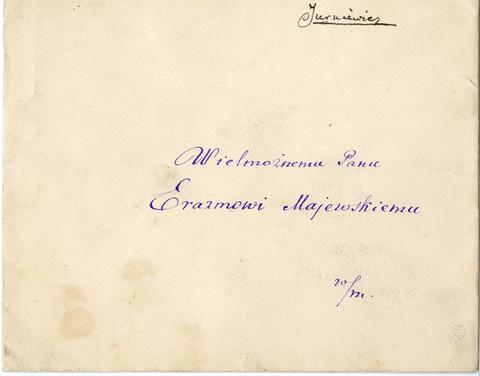 Jurkiewicz
Wielmożnemu Panu
Erazmowi Majewskiemu
w/m.